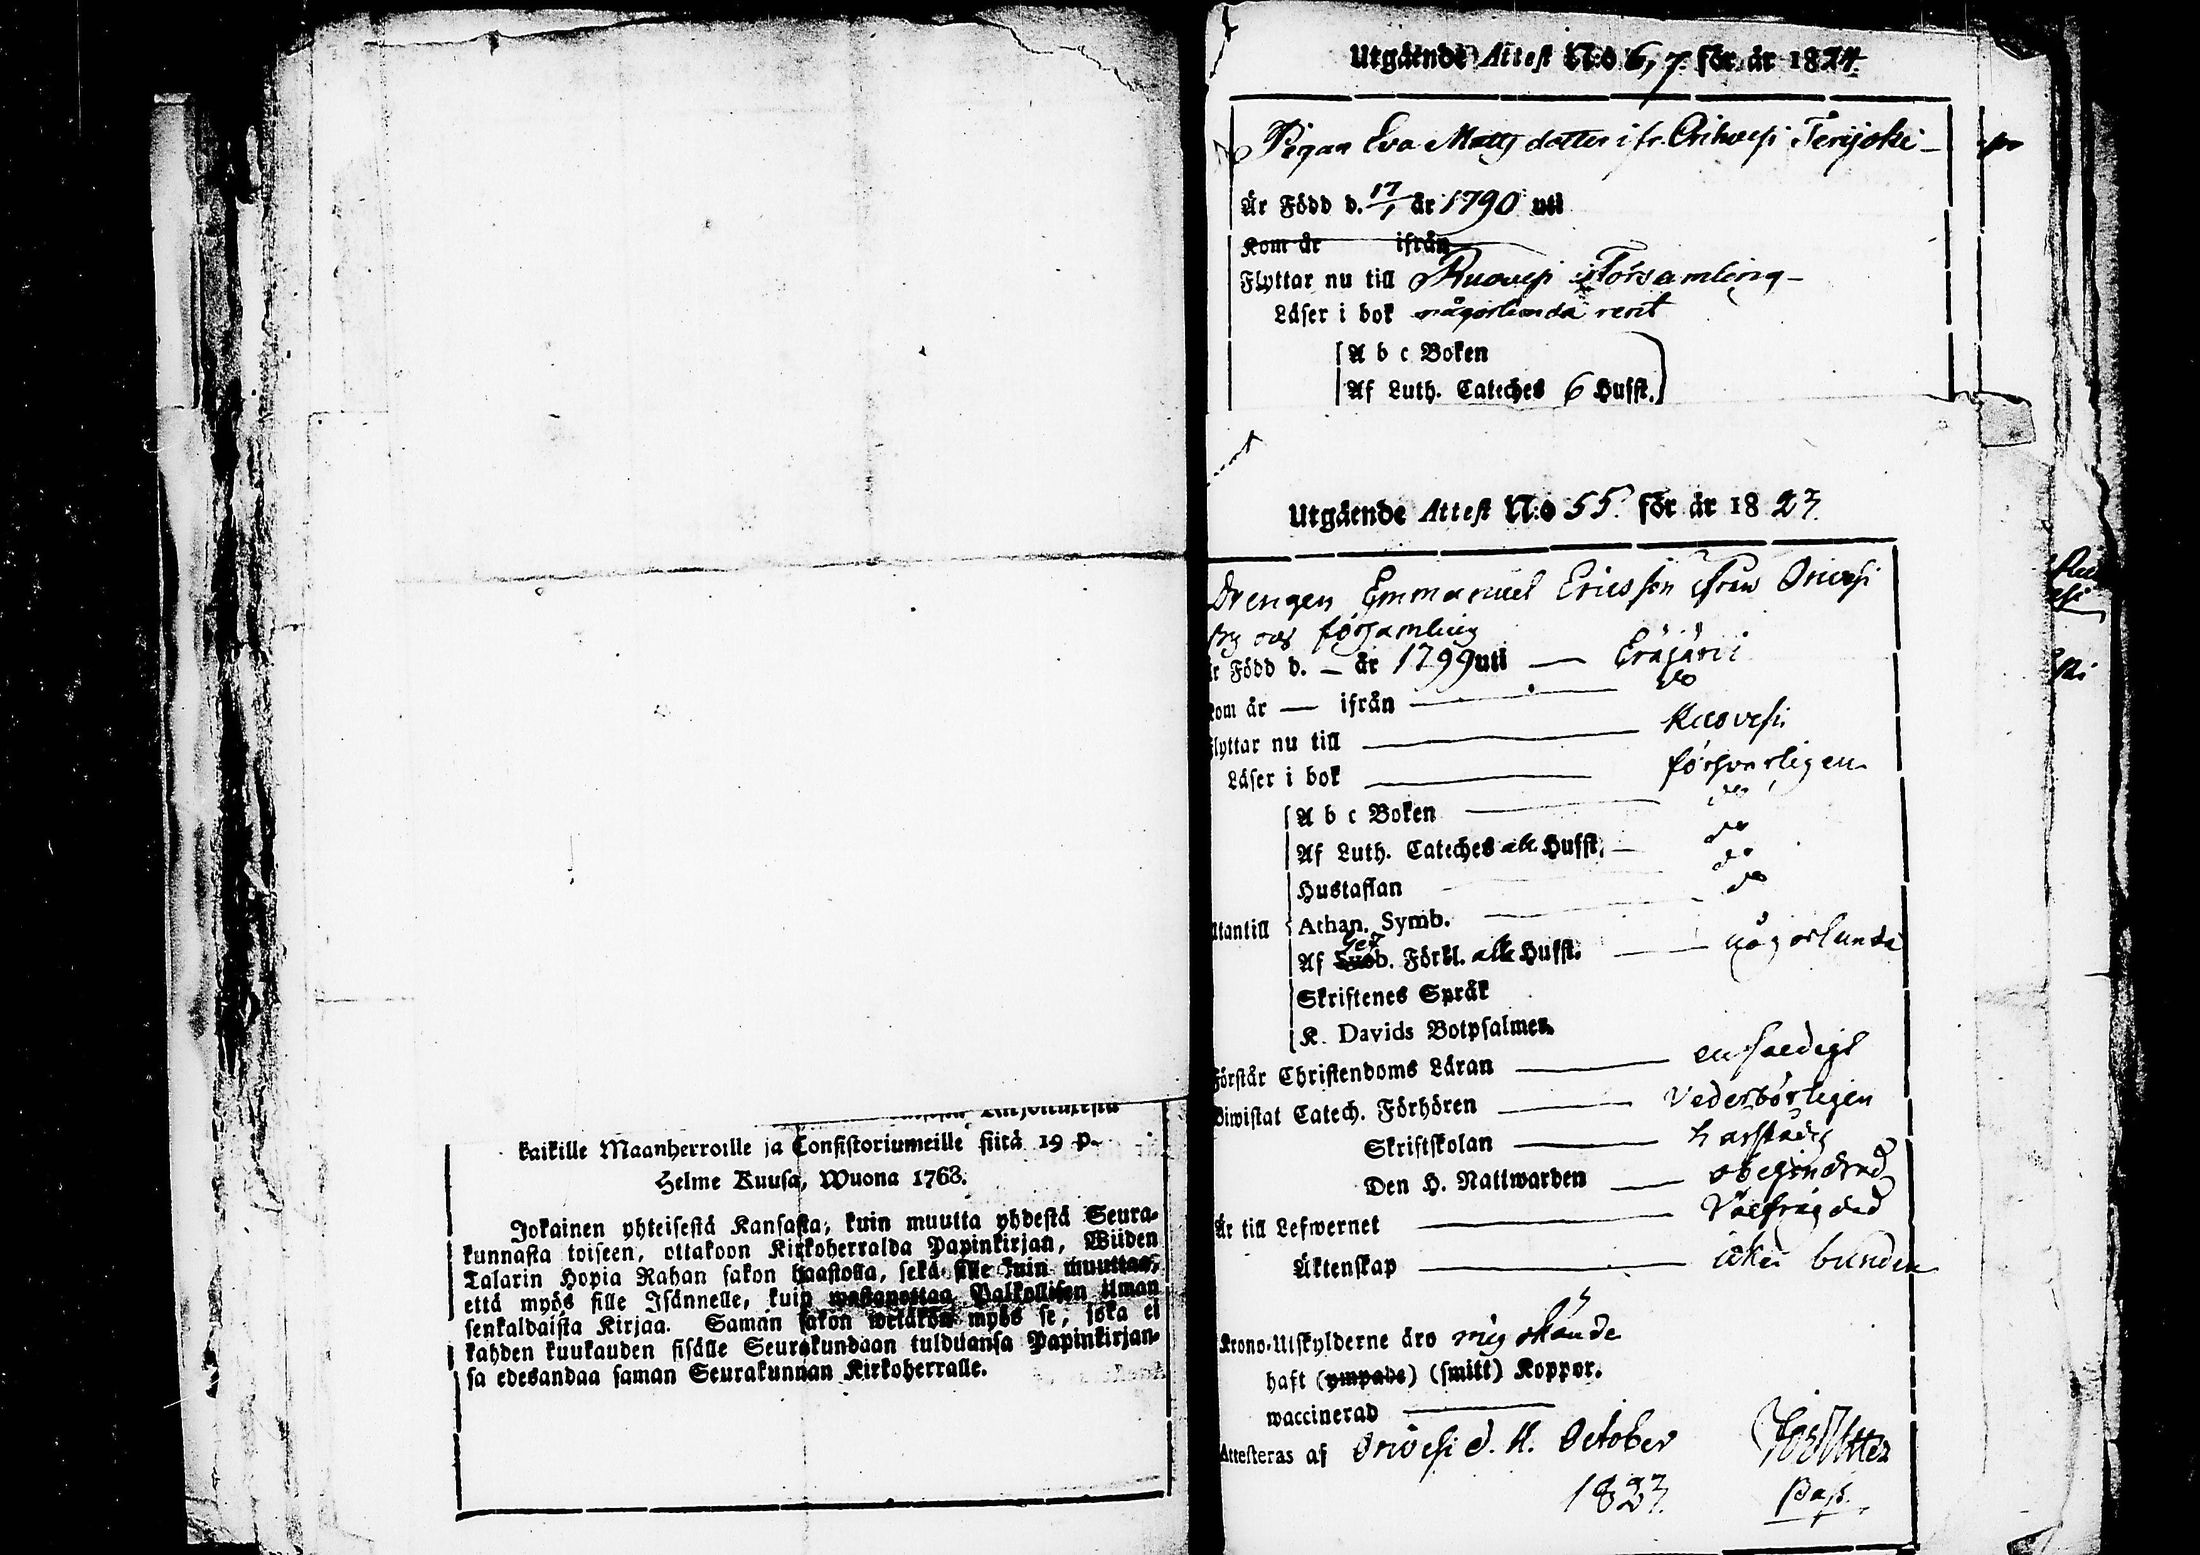 kaikille Maanherroille ja Consistoriumeille siitä 19 p.
Helme Kuusa, Wuona 1763.
Jokainen yhteisestä Kansasta, kuin muutta yhdestä Seura-
kunnasta toiseen, ottakoon Kirkoherralda Papinkirjan, Wiiden
Talarin Hopia Rahan sakon haastolla, sekä sille kuin muuttaa,
että myös sille Isännelle, kuin wastanottaa Palkollisen ilman
senkaldaista Kirjaa. Saman sakon wetäkön myös se, joka ei
kahden kuukauden sisälle Seurakundaan tulduansa Papinkirjan-
sa edesandaa saman Seurakunnan Kirkoherralle.
Utgående Attest N:o 6, 7. för år 1824.
Pigan Eva Matts dotter ifr. Orihvesi Terijoki
Är Född d. 17/1 år 1790 uti
Kom år ifrån
Flyttar nu till Ruovesi Församling
Läser i bok någorlunda rent
A b c Boken
Af Luth. Cateches 6 Hufst.
Utgående Attest N:o 55. för år 1823.
Drengen Emmanuel Ericsson ifrån Orivesi
By och församling
är Född d. – år 1799 uti — Eräjärvi
Kom år — ifrån — do
Flyttar nu till — Ruovesi
Läser i bok — försvarligen
A b c Boken — do
Af Luth. Cateches alla Hufst. — do
Hustaflan — do
Utantill Athan. Symb. — do
Af Sveb. Förkl. alla Hufst. — någorlunda
Skriftenes Språk
K. Davids Botpsalmer.
Förstår Christendoms Läran — enfaldigt
Biwistat Catech. Förhören — Vederbörligen
Skriftskolan —
Den H. Nattwarden — obehindrad
Är till Lefwernet — Välfrägdad
Äktenskap — icke bunden
Krono-Utskylderne äro mig okände
haft (ympade) (smitt) Koppor.
waccinerad —
Attesteras af Orivesi d. 11. October
1823.
Past.